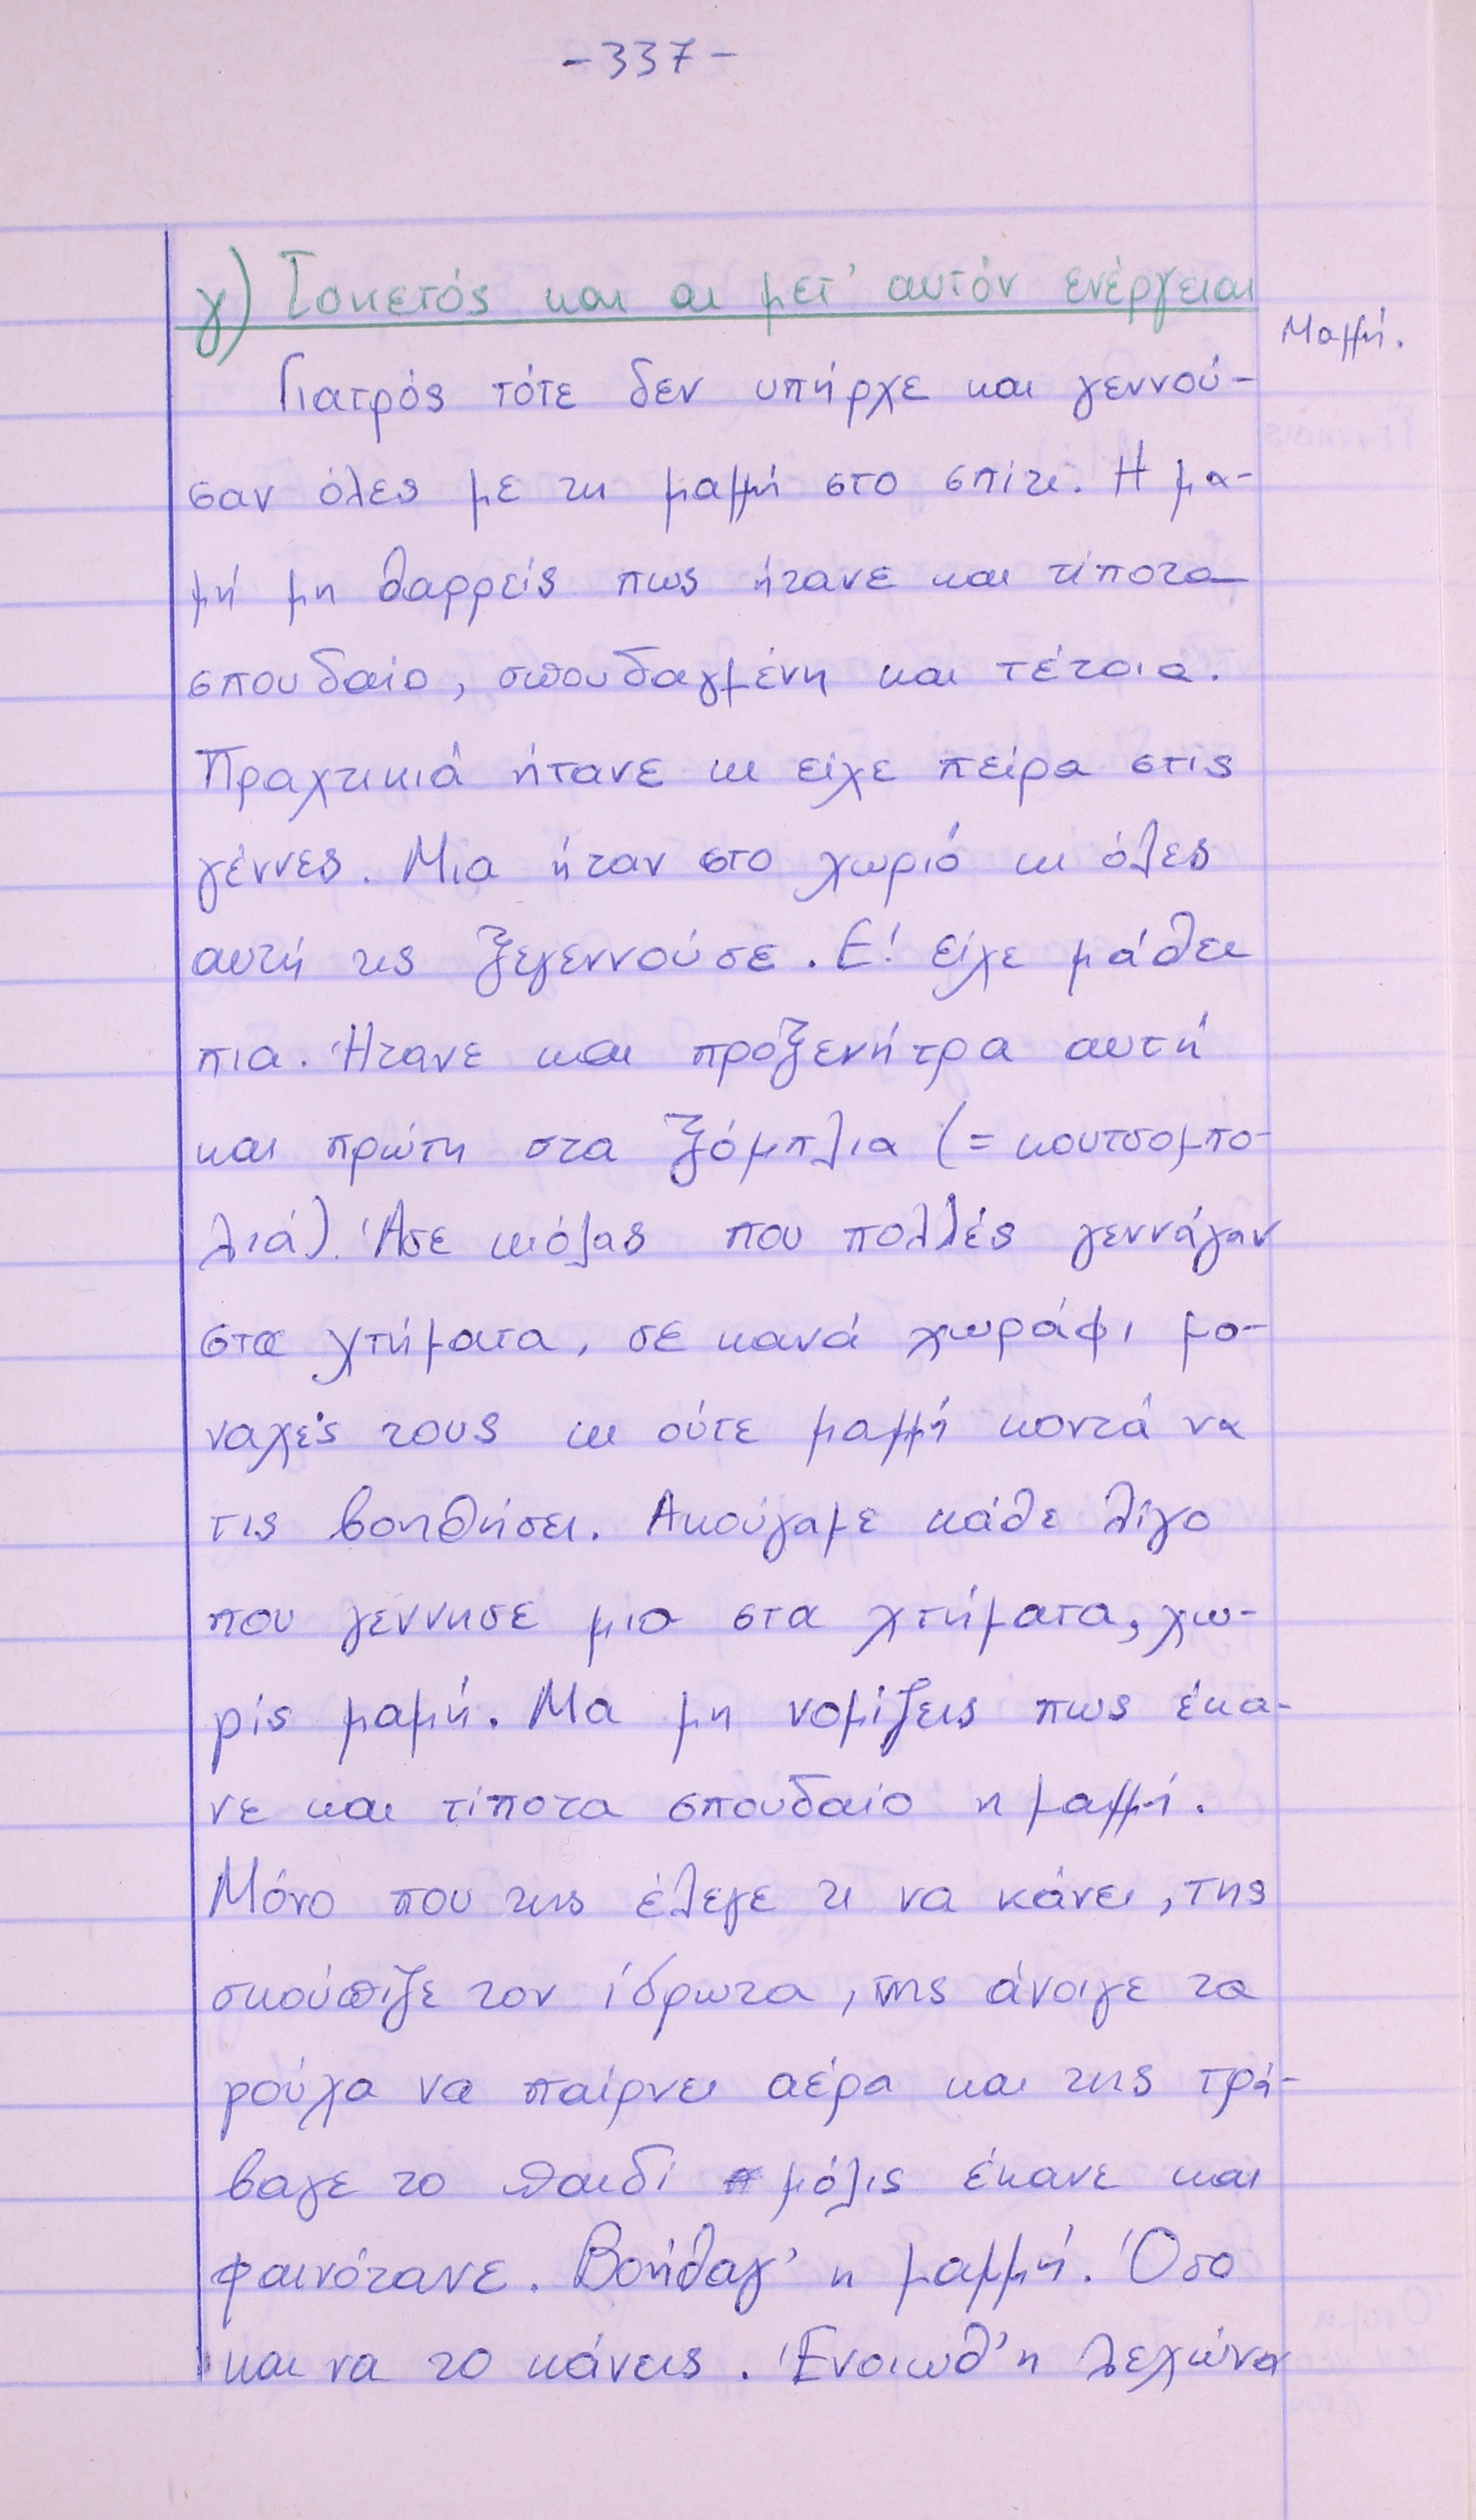 -337-
γ) Τοκετός και αι μετ' αυτόν ενέργειαι
Μαμμή.
Γιατρός τότε δεν υπήρχε και γεννού-
σαν όλες με τη μαμμή στο σπίτι. Η μα-
μή μη θαρρείς πως ήτανε και τίποτα
σπουδαίο, σπουδαγμένη και τέτοια.
Πραχτικιά ήτανε κι είχε πείρα στις
γέννες. Μια ήταν στο χωριό κι όλες
αυτή τις ξεγεννούσε. Ε! είχε μάθει
πια. Ήτανε και προξενήτρα αυτή
και πρώτη στα ξόμπλια (= κουτσομπο-
λιά). Άσε κιόλας που πολλές γεννάγαν
στα χτήματα, σε κανά χωράφι μο-
ναχές τους κι ούτε μαμμή κοντά να
τις βοηθήσει. Ακούγαμε κάθε λίγο
που γέννησε μια στα χτήματα, χω-
ρίς μαμή. Μα μη νομίζεις πως έκα-
νε και τίποτα σπουδαίο η μαμμή.
Μόνο που της έλεγε τι να κάνει, της
σκούπιζε τον ίδρωτα, της άνοιγε τα
ρούχα να παίρνει αέρα και της τρά-
βαγε το παιδί μόλις έκανε και
φαινότανε. Βοήθαγ' η μαμμή. Όσο
και να το κάνεις. Ένοιωθ' η λεχώνα